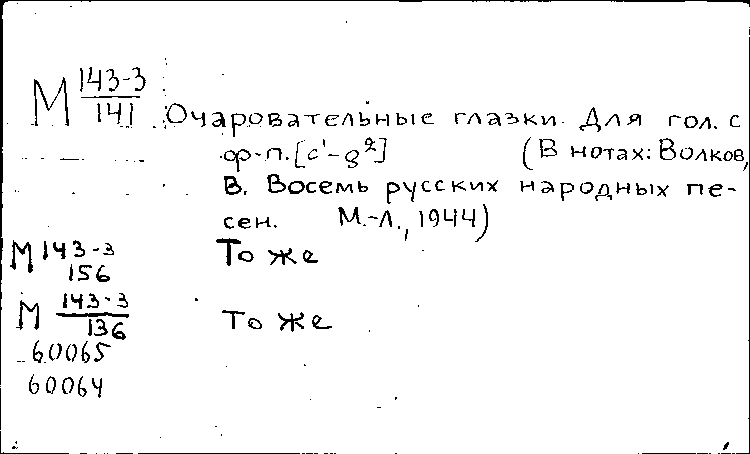 М 143-3/141 Очаровательные глазки. Для гол. с
ф-п. [c¹-g²] (В нотах: Волков,
В. Восемь русских народных пе-
сен. М.-Л., 1944)
М 143-3/156 То же
М 143-3/136 То же
60065
60064